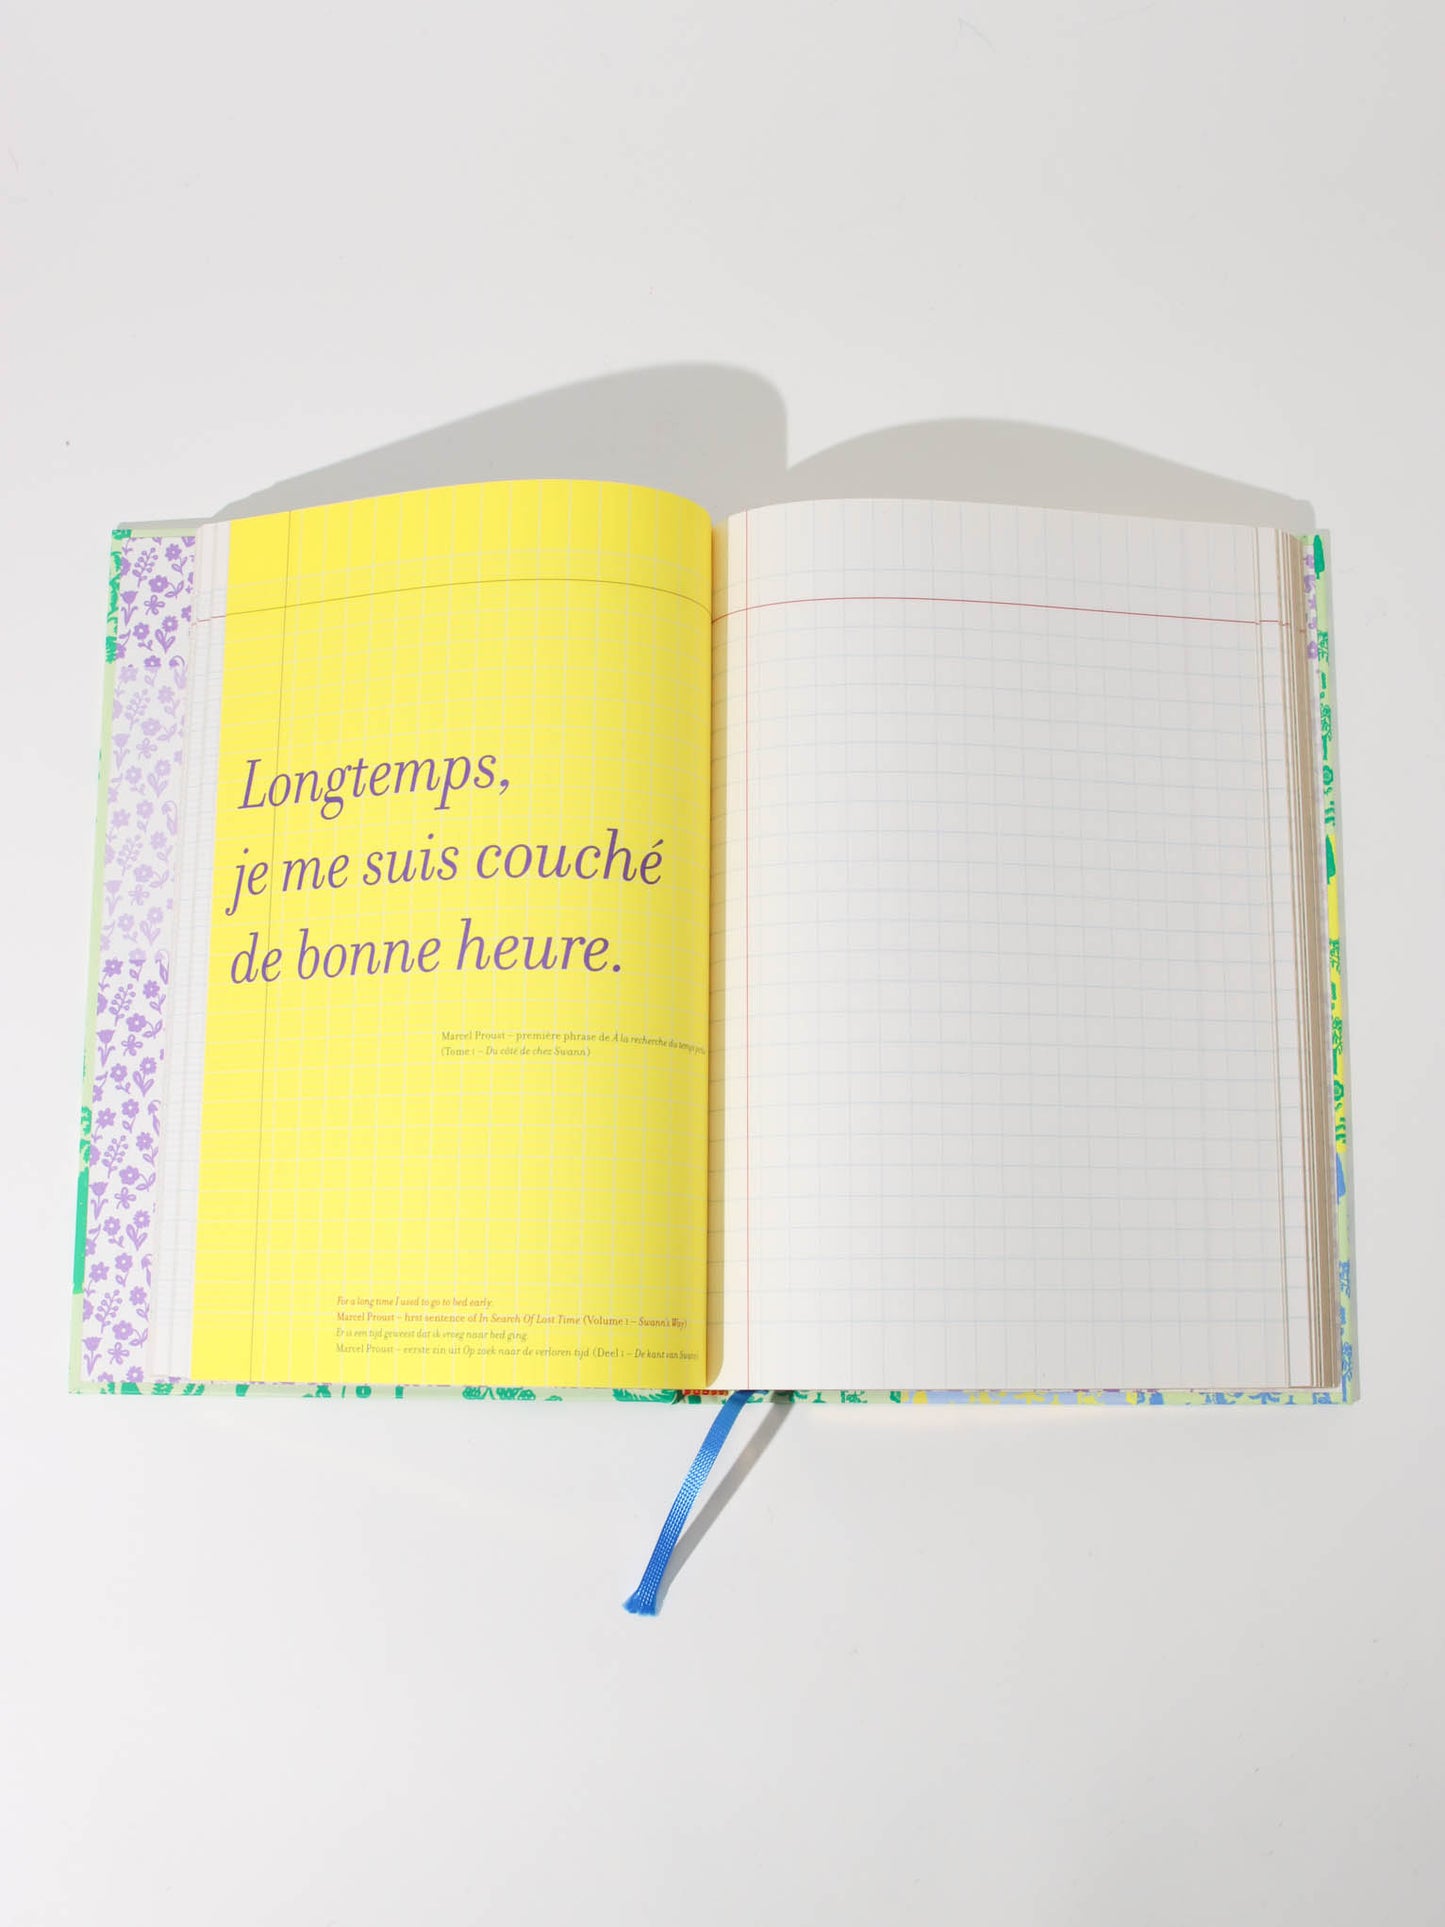 Longtemps,
je me suis couché
de bonne heure.
Marcel Proust – première phrase de À la recherche du temps
(Tome 1 – Du côté de chez Swann)
For a long time I used to go to bed early.
Marcel Proust – first sentence of In Search Of Lost Time (Volume 1 – Swann's Way)
Er is een tijd geweest dat ik vroeg naar bed ging.
Marcel Proust – eerste zin uit Op zoek naar de verloren tijd (Deel 1 – De kant van Swann)